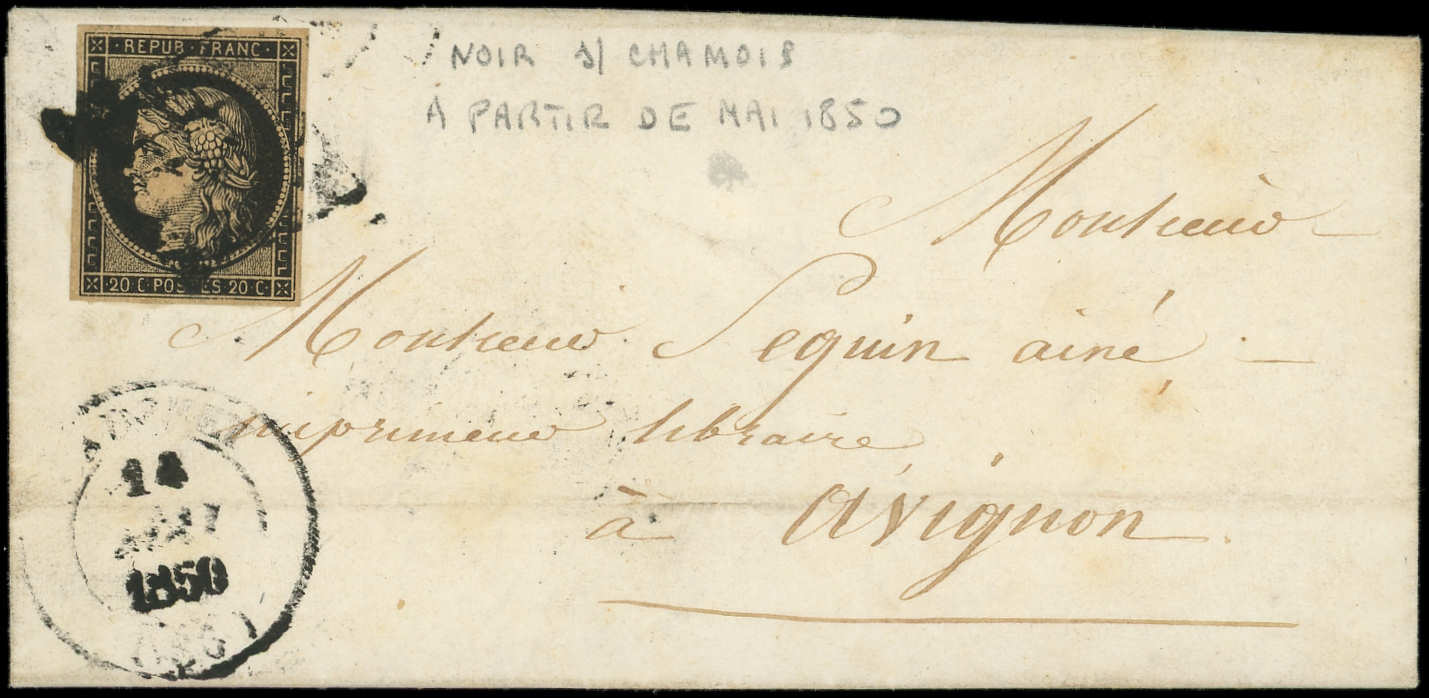 REPUB · FRANC ·
NOIR S/ CHAMOIS
A PARTIR DE MAI 1850
· 20 C · POSTES 20 · C ·
Monsieur
Monsieur Seguin ainé
imprimeur libraire
à avignon
14
MAI
1850